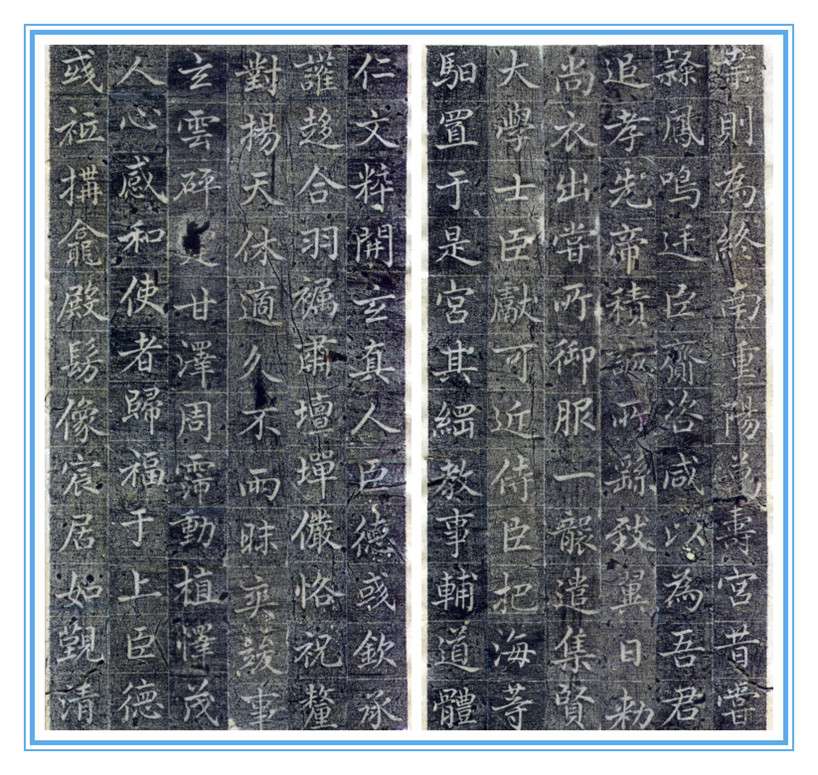 葉則為終南重陽萬壽宮昔嘗
鳳鳴廷臣齎咨咸以為吾君
追孝先帝積誠所繇致翼日敕
尚衣出嘗所御服一襲遣集賢
大學士臣獻可近侍臣把海等
馹置于是宮其綱教事輔道體
仁文粹開玄真人臣德彧欽承
讙趍合羽襹肅壇墠儼恪祝釐
對揚天休適久不雨昧爽竣事
玄雲砰甘澤周霈動植懌茂
人心感和使者歸福于上臣德
彧祗搆龕殿髣像宸居如覲清